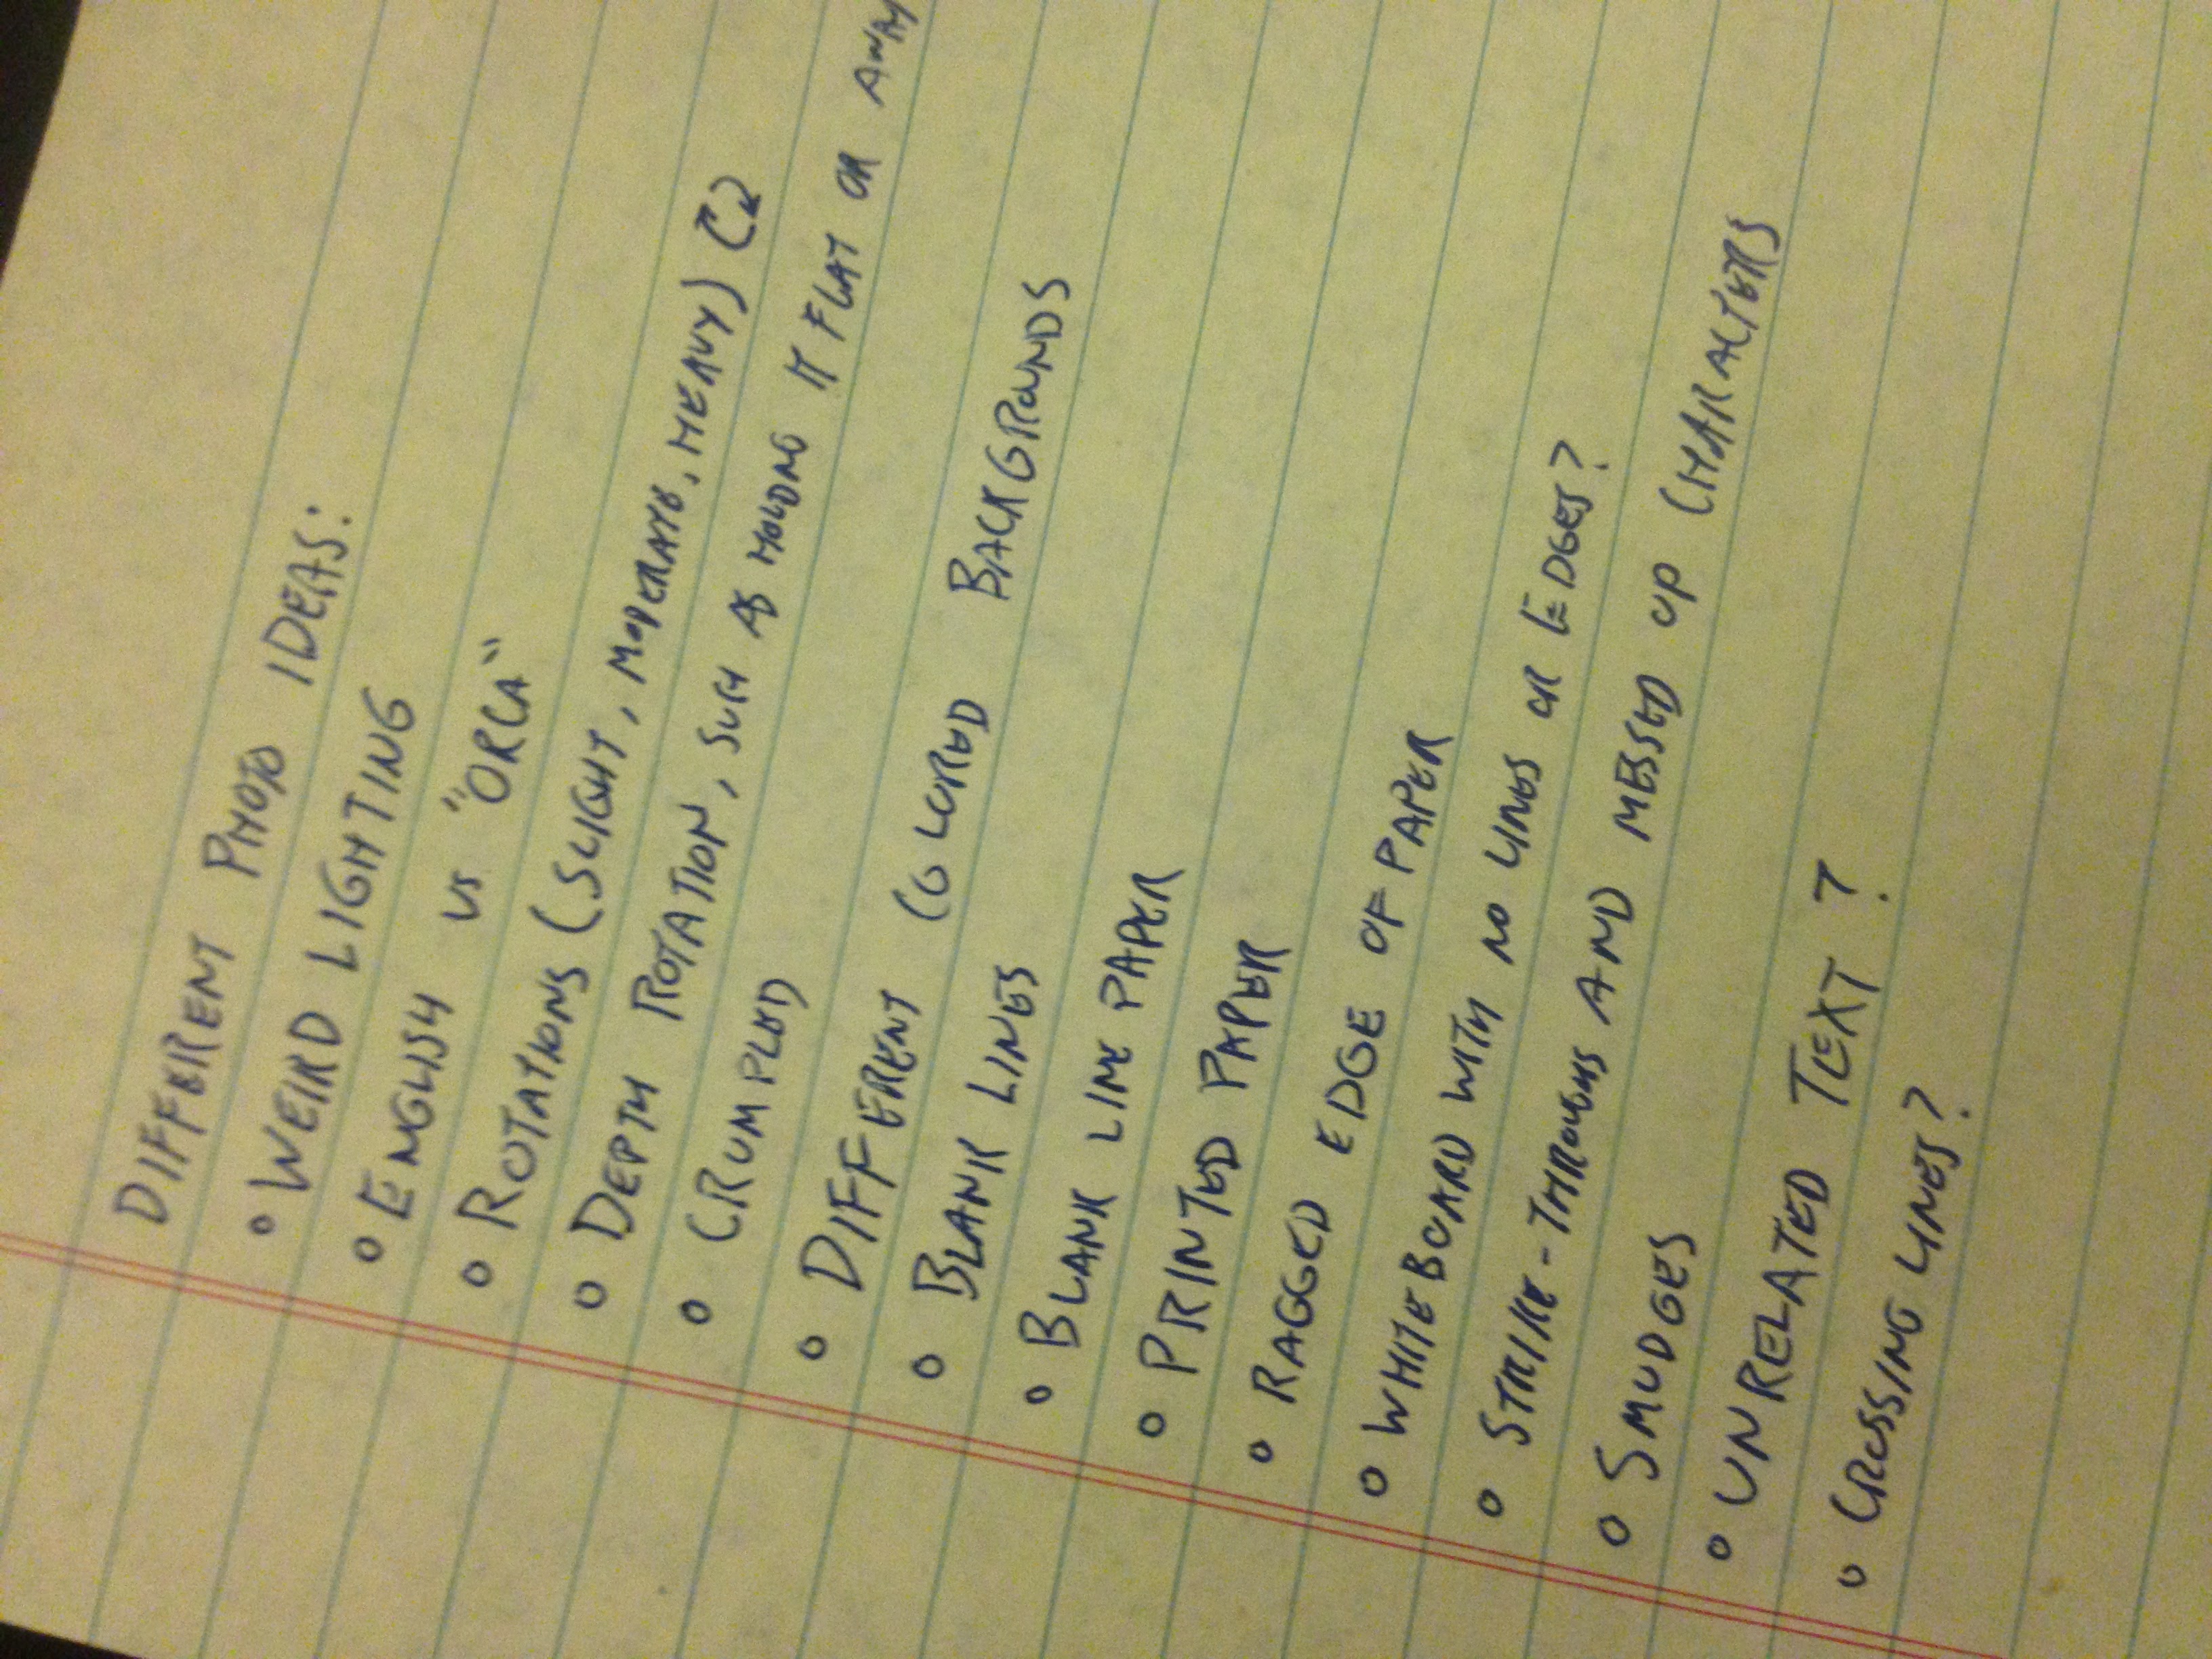 DIFFERENT PHOTO IDEAS:
° WEIRD LIGHTING
° ENGLISH vs "ORCA"
° ROTATIONS (SLIGHT, MODERATE, HEAVY) ↻
° DEPTH ROTATION, SUCH AS HOLDING IT FLAT OR AWAY
° CRUMPLED
° DIFFERENT COLORED BACKGROUNDS
° BLANK LINES
° BLANK LINE PAPER
° PRINTED PAPER
° RAGGED EDGE OF PAPER
° WHITEBOARD WITH NO LINES OR EDGES?
° STRIKE-THROUGHS AND MESSED UP CHARACTERS
° SMUDGES
° UNRELATED TEXT?
° CROSSING LINES?